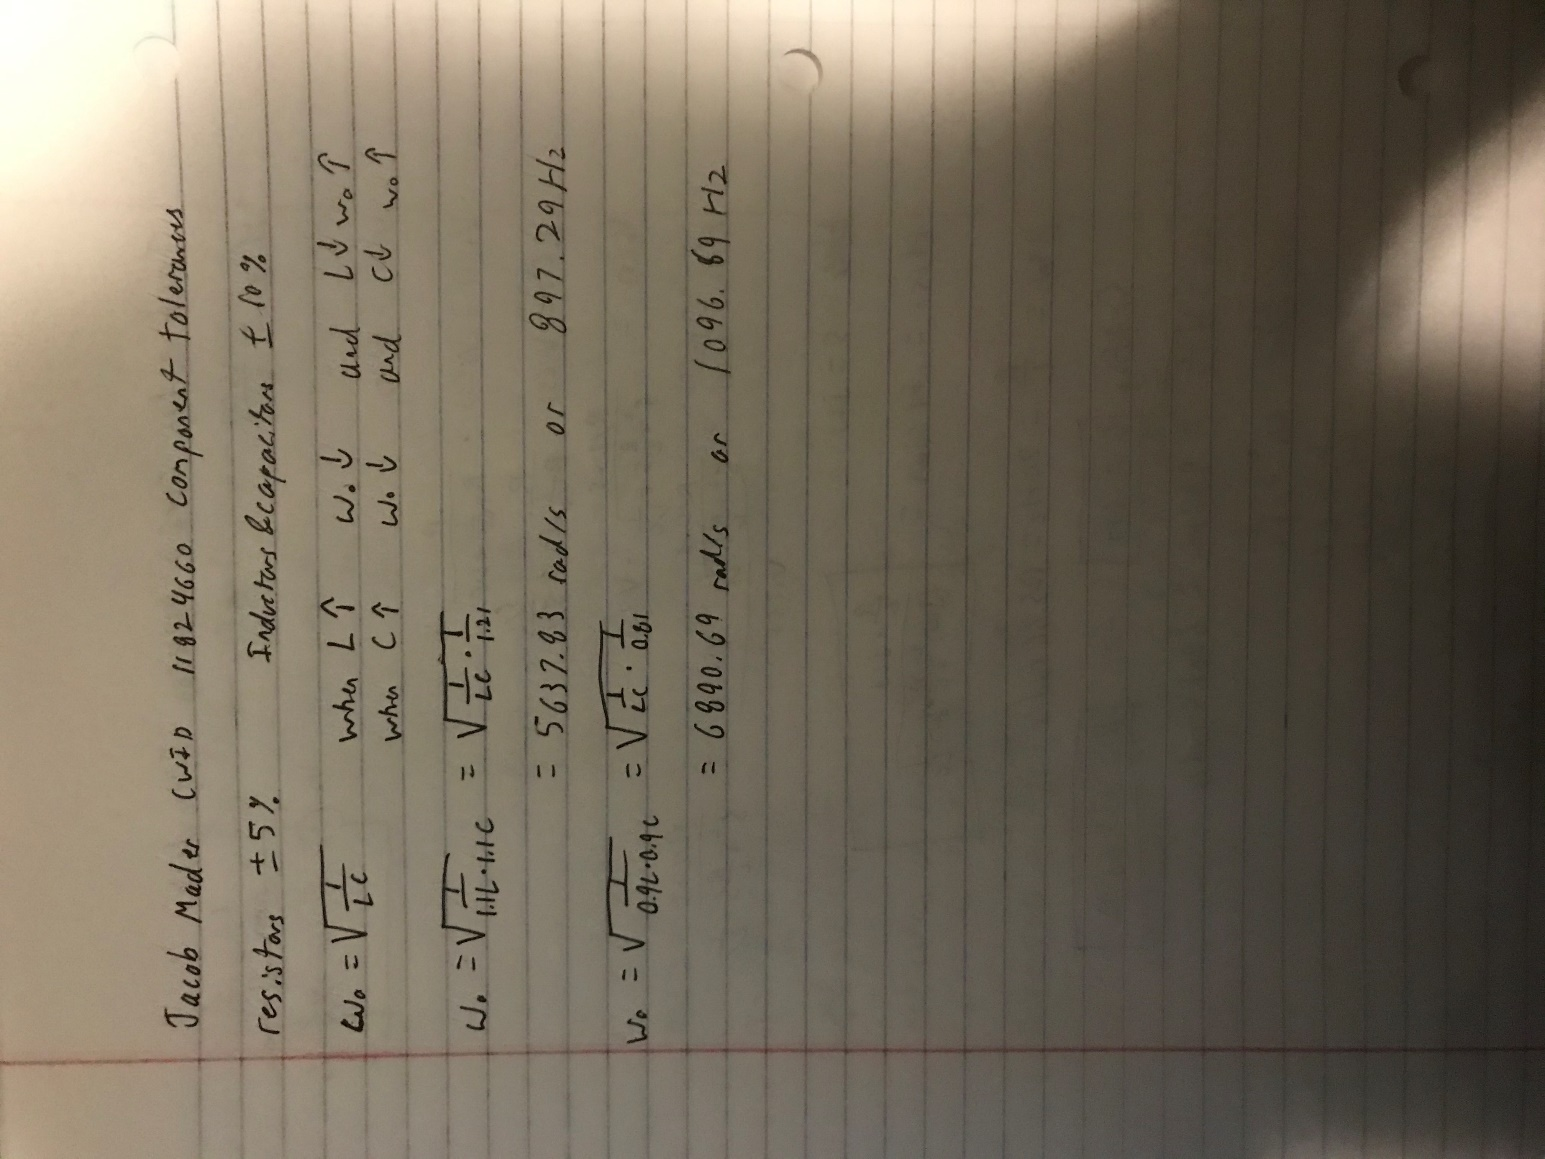 Jacob Mader CWID 11824660 component tolerances
resistors ±5% Inductors & capacitors ± 10%
ω₀ = √(1/LC) when L↑ ω₀↓ and L↓ ω₀↑
when C↑ ω₀↓ and C↓ ω₀↑
ω₀ = √(1/(1.1L·1.1C)) = √(1/LC · 1/1.21)
= 5637.83 rad/s or 897.29 Hz
ω₀ = √(1/(0.9L·0.9C)) = √(1/LC · 1/0.81)
= 6890.69 rad/s or 1096.69 Hz